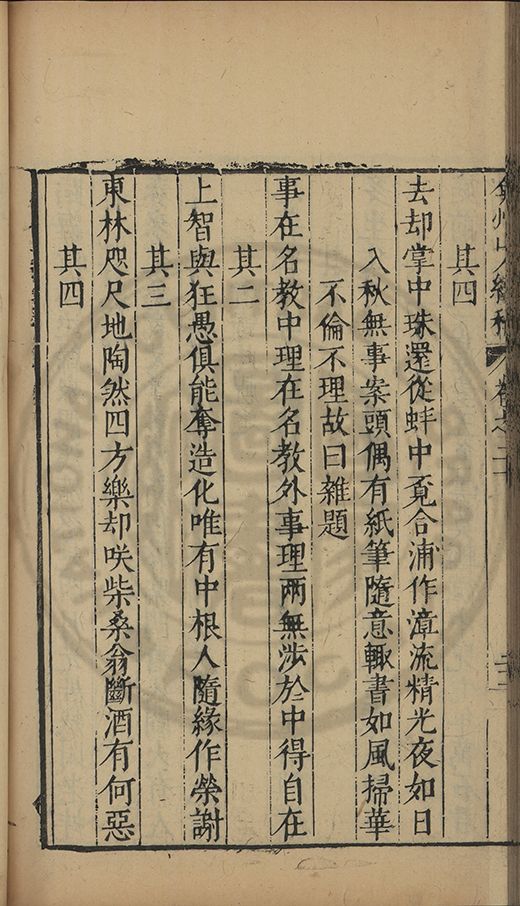 弇州山人續稿 卷之二十
其四
去却掌中珠還從蚌中覔合浦作漳流精光夜如日
入秋無事案頭偶有紙筆隨意輙書如風掃華
不倫不理故曰雜題
事在名教中理在名教外事理兩無涉於中得自在
其二
上智與狂愚俱能奪造化唯有中根人隨緣作榮謝
其三
東林咫尺地陶然四方樂却咲柴桑翁斷酒有何惡
其四